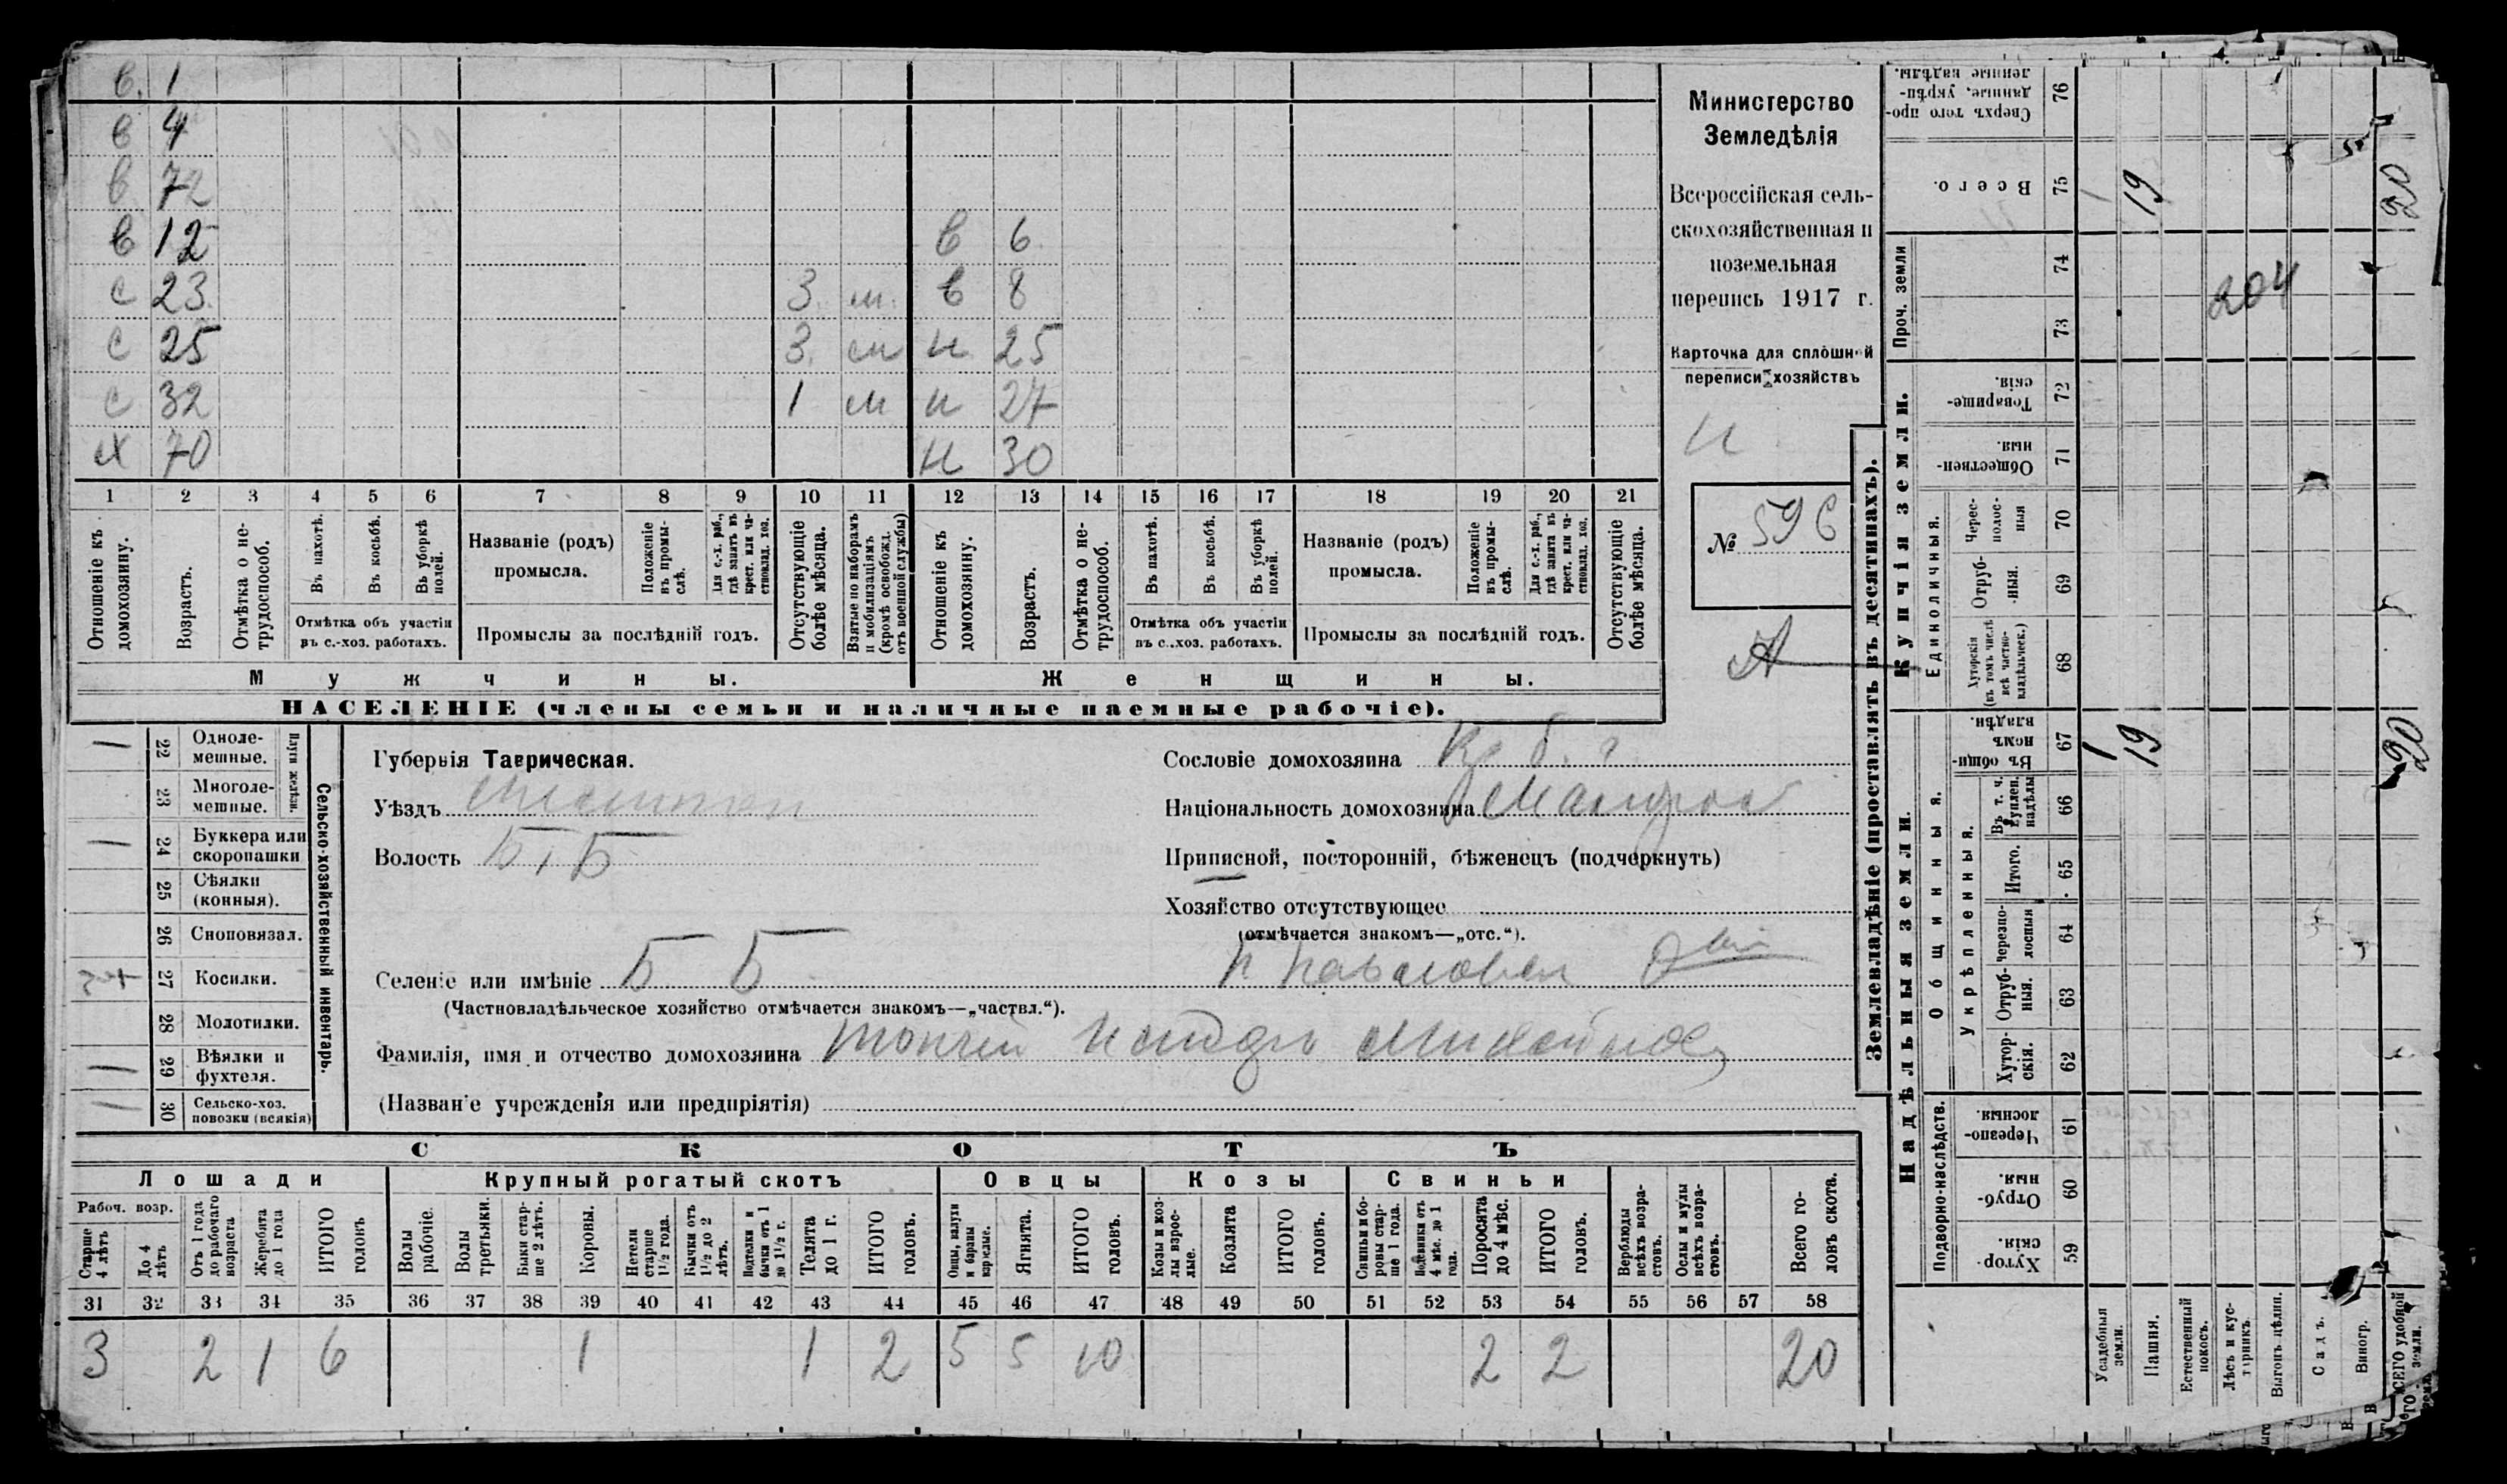 в. 1
в 4
в 72
в 12 в 6
с 23. 3. м. в 8
с 25 3. м н 25
с 32 1 м н 27
х 70 н 30
1 2 3 4 5 6 7 8 9 10 11 12 13 14 15 16 17 18 19 20 21
Отношеніе къ домохозяину.
Возрастъ.
Отмѣтка о не-трудоспособ.
Въ пахотѣ.
Въ косьбѣ.
Въ уборкѣ полей.
Отмѣтка объ участіи въ с.-хоз. работахъ.
Названіе (родъ) промысла.
Положеніе въ промы-слѣ.
Для с.-х. раб., гдѣ занятъ въ крест. или ча-стновлад. хоз.
Промыслы за послѣдній годъ.
Отсутствующіе болѣе мѣсяца.
Взятые по наборамъ и мобилизаціямъ (кромѣ освобожд. отъ военной службы)
Отношеніе къ домохозяину.
Возрастъ.
Отмѣтка о не-трудоспособ.
Въ пахотѣ.
Въ косьбѣ.
Въ уборкѣ полей.
Отмѣтка объ участіи въ с.-хоз. работахъ.
Названіе (родъ) промысла.
Положеніе въ промы-слѣ.
Для с.-х. раб., гдѣ занята въ крест. или ча-стновлад. хоз.
Промыслы за послѣдній годъ.
Отсутствующіе болѣе мѣсяца.
Мужчины. Женщины.
НАСЕЛЕНІЕ (члены семьи и наличные наемные рабочіе).
Министерство
Земледѣлія
Всероссійская сель-
скохозяйственная и
поземельная
перепись 1917 г.
Карточка для сплошной
переписи хозяйствъ
н
№ 596
А
Сельско-хозяйственный инвентарь.
Плуги желѣзн.
22 Одноле-мешные. 1
23 Многоле-мешные.
24 Буккера или скоропашки 1
25 Сѣялки (конныя).
26 Сноповязал.
27 Косилки.
28 Молотилки.
29 Вѣялки и фухтеля. 1
30 Сельско-хоз. повозки (всякія) 1
Губернія Таврическая.
Уѣздъ
Волость Б. Б
Селеніе или имѣніе Б Б
(Частновладѣльческое хозяйство отмѣчается знакомъ—„частвл.“).
Фамилія, имя и отчество домохозяина
(Названіе учрежденія или предпріятія)
Сословіе домохозяина
Національность домохозяина Малорос
Приписной, посторонній, бѣженецъ (подчеркнуть)
Хозяйство отсутствующее
(отмѣчается знакомъ—„отс.“).
СКОТЪ
Лошади Крупный рогатый скотъ Овцы Козы Свиньи
Рабоч. возр.
Старше 4 лѣтъ
До 4 лѣтъ
Отъ 1 года до рабочаго возраста
Жеребята до 1 года
ИТОГО головъ
Волы рабочіе.
Волы третьяки.
Быки стар-ше 2 лѣтъ.
Коровы.
Нетели старше 1½ года.
Бычки отъ 1½ до 2 лѣтъ.
Подтелки и бычки отъ 1 до 1½ г.
Телята до 1 г.
ИТОГО головъ.
Овцы, валухи и бараны взрослые.
Ягнята.
ИТОГО головъ.
Козы и коз-лы взрос-лые.
Козлята
ИТОГО головъ.
Свиньи и бо-ровы стар-ше 1 года.
Подсвинки отъ 4 мѣс. до 1 года.
Поросята до 4 мѣс.
ИТОГО головъ.
Верблюды всѣхъ возра-стовъ.
Ослы и мулы всѣхъ возра-стовъ.
Всего го-ловъ скота.
31 32 33 34 35 36 37 38 39 40 41 42 43 44 45 46 47 48 49 50 51 52 53 54 55 56 57 58
3 2 1 6 1 1 2 5 5 10 2 2 20
Землевладѣніе (проставлять въ десятинахъ).
Надѣльныя земли. Купчія земли. Проч. земли
Подворно-наслѣдств.
Общинныя.
Укрѣпленныя.
Единоличныя.
59 Хутор-скія.
60 Отруб-ныя.
61 Черезпо-лосныя.
62 Хутор-скія.
63 Отруб-ныя.
64 черезпо-лосныя
65 Итого.
66 Въ т. ч. куплен. надѣлы
67 Въ общи-номъ владѣн. 1 19 20
68 Хуторскія (въ томъ числѣ всѣ частно-владѣльческ.)
69 Отруб-ныя.
70 Черес-полос-ныя
71 Обществен-ныя.
72 Товарище-скія.
73
74
204
75 Всего. 1 19 20
76 Сверхъ того про-данные, укрѣп-ленные надѣлы.
Усадебныя земли.
Пашня.
Естественный покосъ.
Лѣсъ и кус-тарникъ.
Выгонъ цѣлин.
Садъ.
Виногр.
ВСЕГО удобной земли.